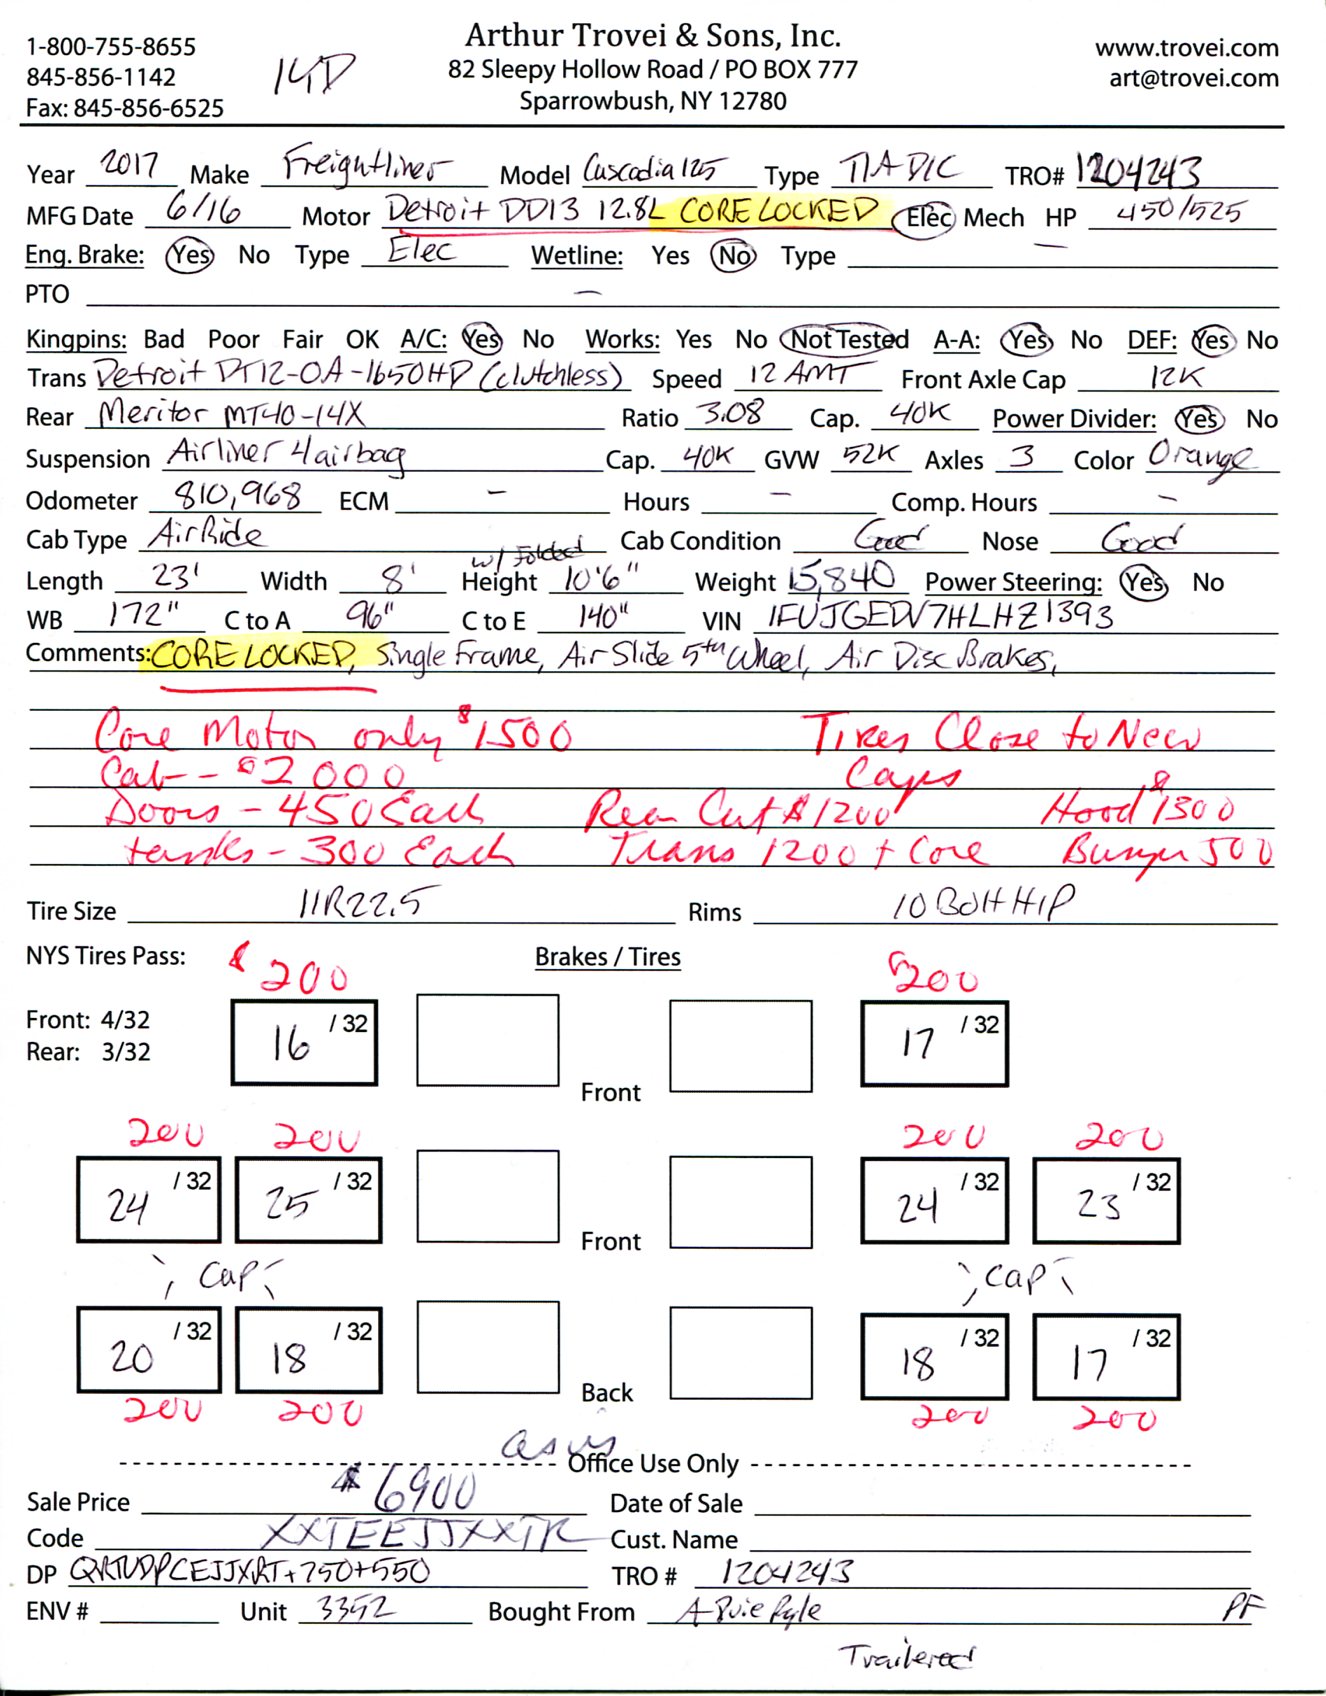 1-800-755-8655
845-856-1142
Fax: 845-856-6525
14D
Arthur Trovei & Sons, Inc.
82 Sleepy Hollow Road / PO BOX 777
Sparrowbush, NY 12780
www.trovei.com
art@trovei.com
Year 2017 Make Freightliner Model Cascadia 125 Type T/A D/C TRO# 1204243
MFG Date 6/16 Motor Detroit DD13 12.8L CORE LOCKED Elec Mech HP 450/525
Eng. Brake: Yes No Type Elec Wetline: Yes No Type —
PTO —
Kingpins: Bad Poor Fair OK A/C: Yes No Works: Yes No Not Tested A-A: Yes No DEF: Yes No
Trans Detroit DT12-OA-1650HP (clutchless) Speed 12 AMT Front Axle Cap 12K
Rear Meritor MT40-14X Ratio 3.08 Cap. 40K Power Divider: Yes No
Suspension Airliner 4 airbag Cap. 40K GVW 52K Axles 3 Color Orange
Odometer 810,968 ECM — Hours — Comp. Hours —
Cab Type Air Ride Cab Condition Good Nose Good
w/ Folded
Length 23' Width 8' Height 10'6" Weight 15,840 Power Steering: Yes No
WB 172" C to A 96" C to E 140" VIN 1FUJGEDV7HLHZ1393
Comments: CORE LOCKED, Single Frame, Air Slide 5th Wheel, Air Disc Brakes,
Core Motor only $1500 Tires Close to New
Cab - $2000 Caps
Doors - 450 Each Rear Cut $1200 Hood $1300
tanks - 300 Each Trans 1200 + Core Bumper 500
Tire Size 11R22.5 Rims 10 Bolt H/P
NYS Tires Pass: $200 Brakes / Tires $200
Front: 4/32 16 /32 17 /32
Rear: 3/32
Front
200 200 200 200
24 /32 25 /32 24 /32 23 /32
Front
Cap Cap
20 /32 18 /32 18 /32 17 /32
Back
200 200 200 200
as is
Office Use Only
Sale Price $6900 Date of Sale
Code XXTEEJJXXTR Cust. Name
DP +750+550 TRO # 1204243
ENV # Unit 3352 Bought From PF
Trailered